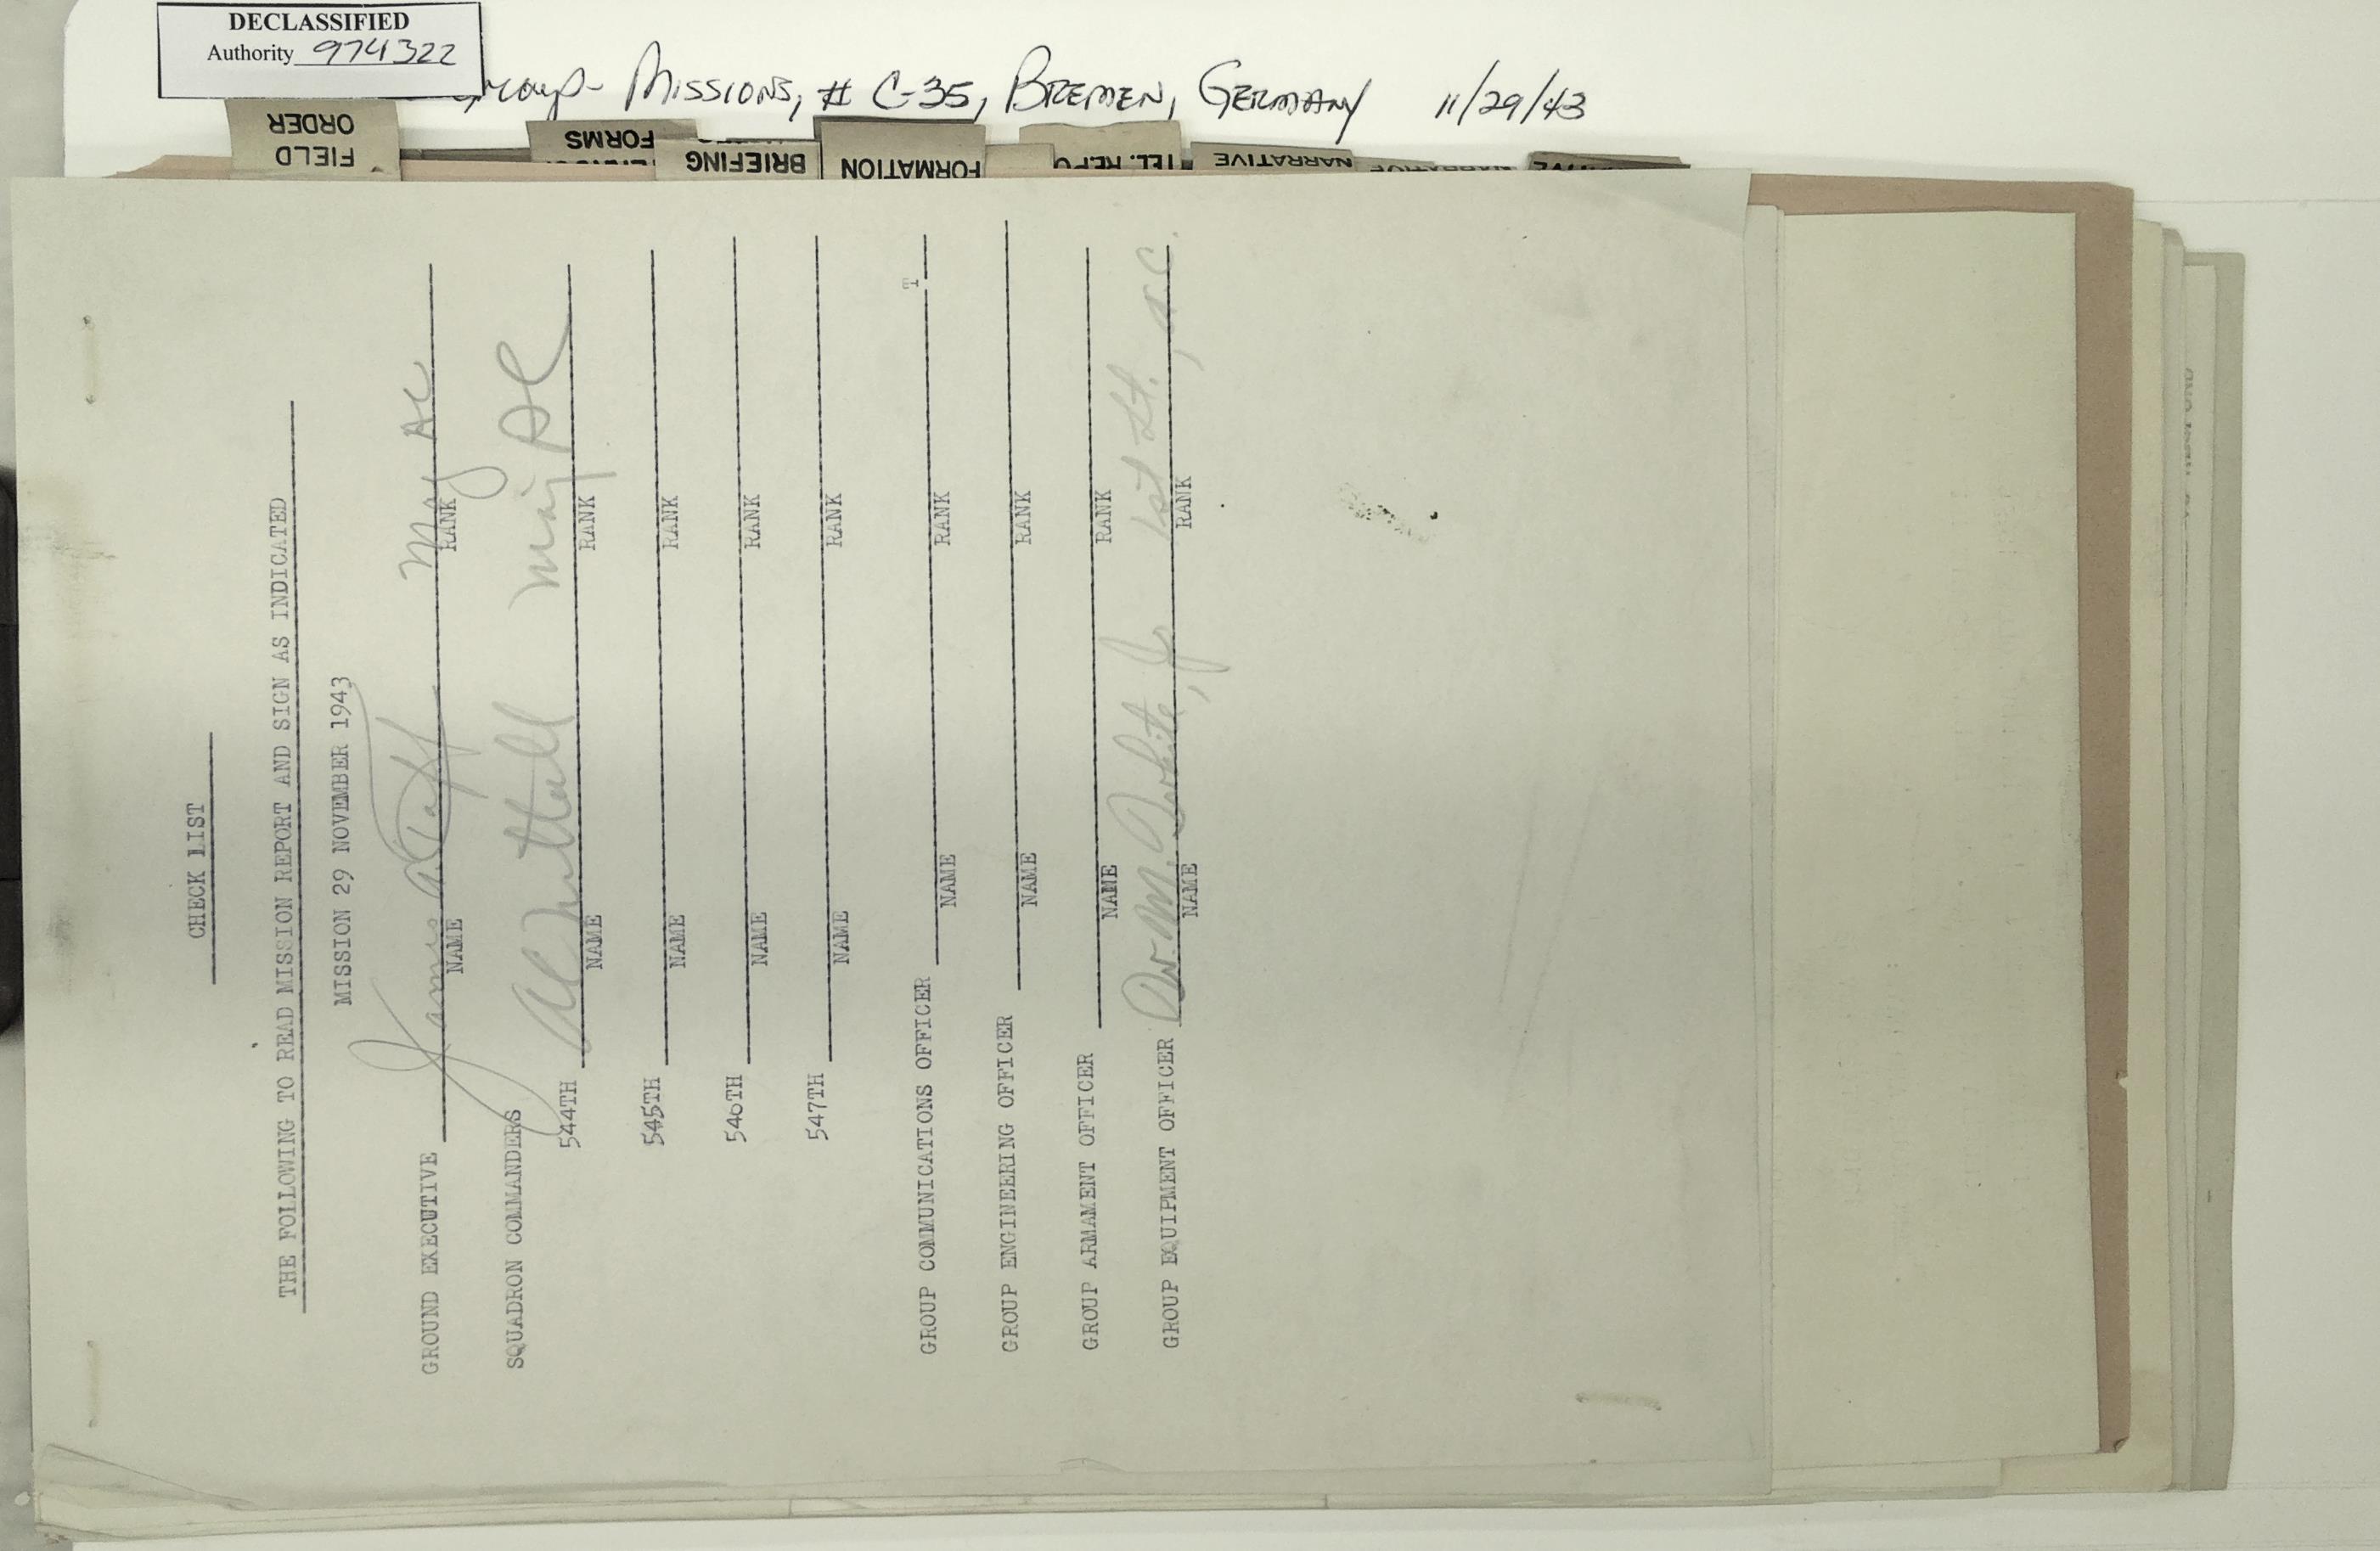 DECLASSIFIED
Authority 974322
Group- Missions, # C-35, Bremen, Germany 11/29/43
FIELD
ORDER
FORMS
BRIEFING
FORMATION
TEL. REPO
NARRATIVE
CHECK LIST
THE FOLLOWING TO READ MISSION REPORT AND SIGN AS INDICATED
MISSION 29 NOVEMBER 1943
GROUND EXECUTIVE James A. Taff Maj AC
NAME RANK
SQUADRON COMMANDERS
544TH Nuttall Maj AC
NAME RANK
545TH
NAME RANK
546TH
NAME RANK
547TH
NAME RANK
GROUP COMMUNICATIONS OFFICER T
NAME RANK
GROUP ENGINEERING OFFICER
NAME RANK
GROUP ARMAMENT OFFICER
NAME RANK
GROUP EQUIPMENT OFFICER W. M. White, Jr 1st Lt., A.C.
NAME RANK